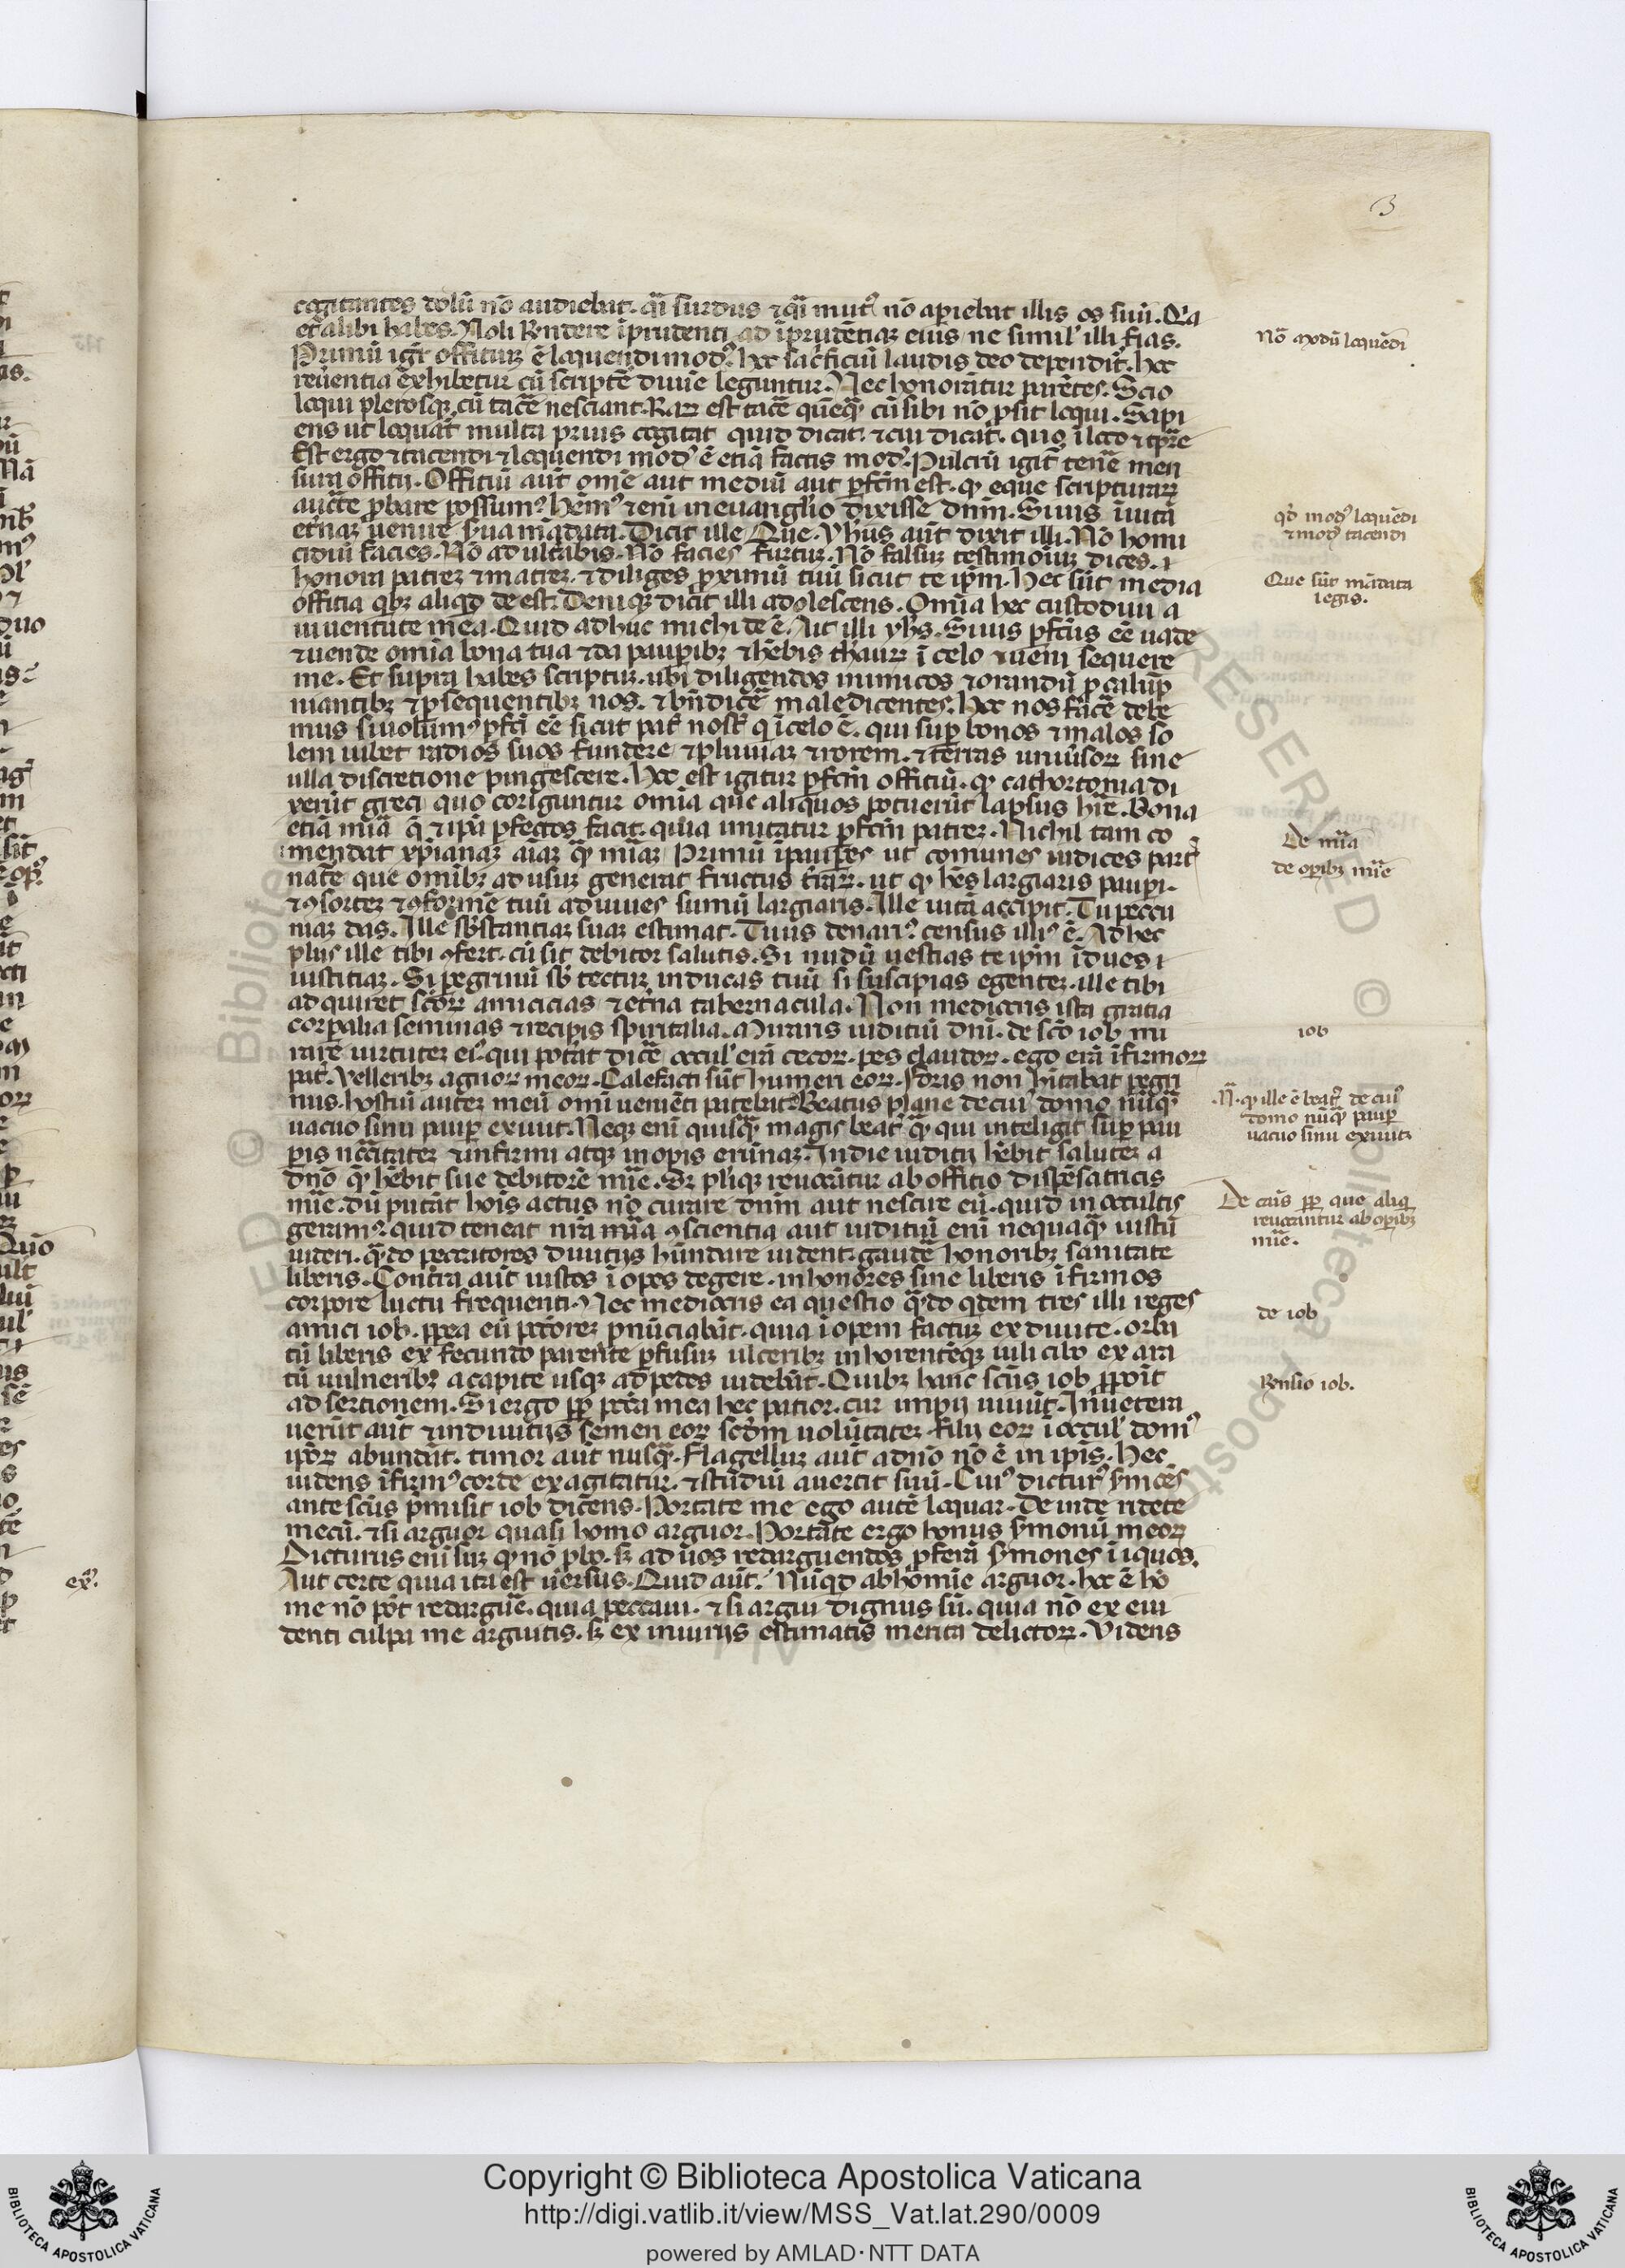 3
cogitantes dolū nō audiebat. q̄i surdus ⁊ q̄i mutꝰ nō aperiebat illis os suū. Q'a
et alibi habes. Noli Rn̄dere īprudenti ad īprudētiaꝫ eius ne simil' illi fias.
Primū igr̄ offitiuꝫ ē loquendi modꝰ. hoc sac̄ficiū laudis deo dependit̄. hoc
reūentia exhibetur cū scriptē diuīe leguntur. Nec honorātur parētes. Scio
loqui plerosqꝫ cū tacē nesciant. Raꝝ est tacē quēqꝫ cū sibi nō ꝓsit loqui. Sapi
ens ut loquat̄ multa prius cogitat quid dicat. ⁊ cui dicat̄. quo ī loco ⁊ tp̄re
Est ergo ⁊ tacendi ⁊ loquendi modꝰ ē etiā factis modꝰ. Pulcrū igit̄ tenē men
surā offitij. Offitiū aūt om̄e aut mediū aut ꝑfc̄m est. qꝫ eque scripturaꝝ
auctē ꝓbare possumꝰ. hēmꝰ ⁊ enī in euangl'io dixisse dn̄m. Siuis ī uitā
et̄naꝫ uenire s̄ua mādata. Dicit ille Que. yh̄us aūt dixit illi. Nō homi
cidiū facies. Nō adult̄abis. Nō facies furtuꝫ. Nō falsuꝫ testimoiuꝫ dices. ⁊
honora patreꝫ ⁊ matreꝫ. ⁊ diliges ꝓximū tuū sicut te ip̄m. Hec sūt media
offitia qbꝫ aliqd deest. Deniqꝫ dicit illi adolescens. Omīa hec custodiui a
iuuentute mea. Quid adhuc michi de ē. Ait illi yh̄s. Siuis ꝑfc̄us ēē uade
⁊ uende omīa bona tua ⁊ da pauꝑibꝫ ⁊ hēbis thauꝝ ī celo ⁊ ueni sequere
me. Et supra habes scriptuꝫ. ubi diligendos inimicos ⁊ orandū ꝓ calūp
niantibꝫ ⁊ ꝑsequentibꝫ nos. ⁊ bn̄dicē maledicentes. Hoc nos facē debe
mus siuolumꝰ ꝑfc̄i ēē sicut pat̄ nosṫ q ī celo ē. qui suꝑ bonos ⁊ malos so
lem iubet radios suos fundere ⁊ pluuiaꝫ ⁊ rorem. ⁊ terras uniūsoꝝ sine
ulla discretione pinguescere. Hoc est igitur ꝑfc̄m offitiū. qꝫ cathortoma di
xerūt greci quo coriguntur omīa que aliquos potuerūt lapsus hr̄e. Bona
etiā mīa q̄ ⁊ ip̄a ꝑfectos facit. quia imitatur ꝑfc̄m patreꝫ. Nichil tam co
mendat xp̄ianaꝫ aīaꝫ qꝫ mīaꝫ Primū ī pauꝑes ut comunes iudices part̄
nat̄e que omībꝫ ad usuꝫ generat fructus t̄raꝝ. ut qꝫ hēs largiaris pauꝑi.
⁊ ꝯsorteꝫ ⁊ ꝯformē tuū adiuues sumū largiaris. Ille uitā accipit. Tu peccu
niaꝫ das. Ille sb̄stantiaꝫ suaꝫ estimat. Tuus denariꝰ census illiꝰ ē. Ad hec
plus ille tibi ꝯfert. cū sit debitor salutis. Si nudū uestias te ip̄m īduis ⁊
iustitiaꝫ. Si ꝑegrinū sb̄ tectuꝫ inducas tuū si suscipias egenteꝫ. ille tibi
adquiret sc̄oꝝ amicicias ⁊ et̄na tabernacula. Non mediocris ista gratia
corꝑalia seminas ⁊ recipis spiritalia. Miraris iuditiū dn̄i. de sc̄o iob mi
rare uirtuteꝫ eiꝰ. qui pot̄at dicē ocul' erā cecoꝝ. pes claudoꝝ. ego erā īfirmoꝝ
pat̄. Velleribꝫ agnoꝝ meoꝝ. Calefacti sūt humeri eoꝝ. foris non h̄itabat ꝑegri
nus. hostiū auteꝫ meū omī ueniēti patebat. Beatus plane de cuiꝰ domo nūqꝫ
uacuo sinu pauꝑ exiuit. Neqꝫ enī quisqꝫ magis beatꝰ qꝫ qui inteligit suꝑ pau
ꝑis nc̄citateꝫ ⁊ infirmi atqꝫ inopis erūnaꝫ. In die iuditij hēbit saluteꝫ a
dn̄o qꝫ hēbit sue debitorē mīe. Sꝫ pl'iqꝫ reuocātur ab offitio dispēsatricis
mīe. dū putāt hoīs actus nō curare dn̄m aut nescire eū. quid in occultis
geramꝰ. quid teneat nr̄a mīa ꝯscientia aut iuditiū enī nequaqꝫ iustū
uideri. qn̄do peccatores diuitijs hūndare uident. gaudē honoribꝫ sanitate
liberis. Contra aūt iustos ī opes degere. inhonores sine liberis īfirmos
corpore luctu frequenti. Nec mediocris ea questio qn̄do qdem tres illi reges
amici iob. ꝓpea eū pctoreꝫ ꝓnūciabāt. quia ī opem factuꝫ ex diuite. orba
tū liberis ex fecundo parente ꝑfusuꝫ ulceribꝫ inhorentēqꝫ uili cibo exara
tū uulneribꝫ a capite usqꝫ ad pedes uidebāt. Quibꝫ hanc sc̄us iob ꝓpoīt
adsertionem. Si ergo ꝓp pctā mea hec patior. cur impij uiuūt. Inuetera
uerūt aūt ⁊ in diuitijs semen eoꝝ scd̄m uolūtateꝫ. filij eoꝝ ī ocul' domꝰ
ip̄oꝝ abundāt. timor aūt nusqꝫ. flagelluꝫ aūt a dn̄o nō ē in ip̄is. Hec
uidens īfirmꝰ corde exagitatur. ⁊ studiū auertit suū. Cuiꝰ dicturꝰ s̄mōēs
ante sc̄us p̄misit iob dicens. Portate me ego autē loquar. Deinde ridete
mecū. ⁊ si arguor quasi homo arguor. Portate ergo honus s̄monū meoꝝ
Dicturus enī suꝫ qꝫ nō ꝓbo. sꝫ ad ūos redarguendos ꝓferā s̄mones īiquos.
Aut certe quia ita est ūersus. Quid aūt. Nūqd ab homīe arguor. hoc ē ho
me nō pōt redarguē. quia peccaui. ⁊ si argui dignus sū. quia nō ex eui
denti culpa me arguitis. sꝫ ex iniurijs estimatis merita delictoꝝ. Videns
Nō modū loquēdi
qd̄ modꝰ loquēdi
⁊ modꝰ tacendi
Que sūt mādata
legis.
De mīa
de oꝑibꝫ mīe
iob
.N̄. qꝫ ille ē beatꝰ de cuiꝰ
domo nūqꝫ pauꝑ
uacuo sinu exiuit
De caūs ꝓp que aliq
reuocantur ab oꝑibꝫ
mīe.
de iob
Rensio iob.
exꝰ.
Copyright © Biblioteca Apostolica Vaticana
http://digi.vatlib.it/view/MSS_Vat.lat.290/0009
powered by AMLAD·NTT DATA
BIBLIOTECA APOSTOLICA VATICANA
BIBLIOTECA APOSTOLICA VATICANA